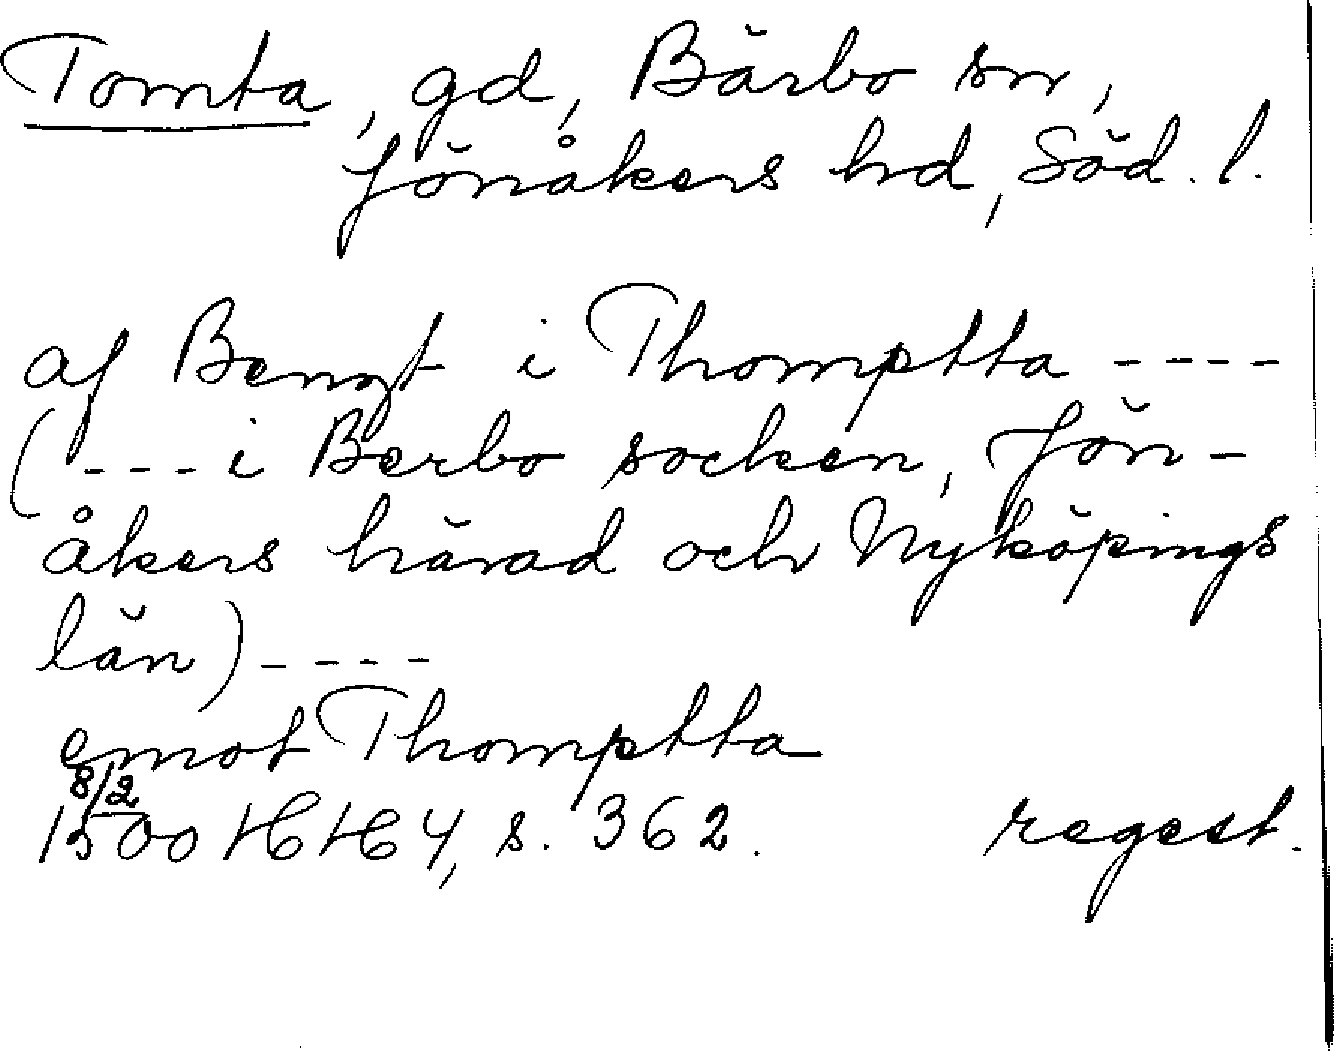 Tomta, gd, Bärbo sn,
Jönåkers hd, Söd. l.
af Bengt i Thomptta ----
(---i Berbo socken, Jön-
åkers härad och Nyköpings
län)----
emot Thomptta
8/2
1500 HH 4, s. 362. regest.